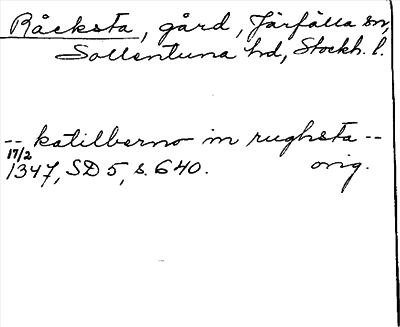 Råcksta, gård, Järfälla sn,
Sollentuna hd, Stockh. l.
-- katilberno in rughsta --
17/2
1347, SD 5, s. 640. orig.